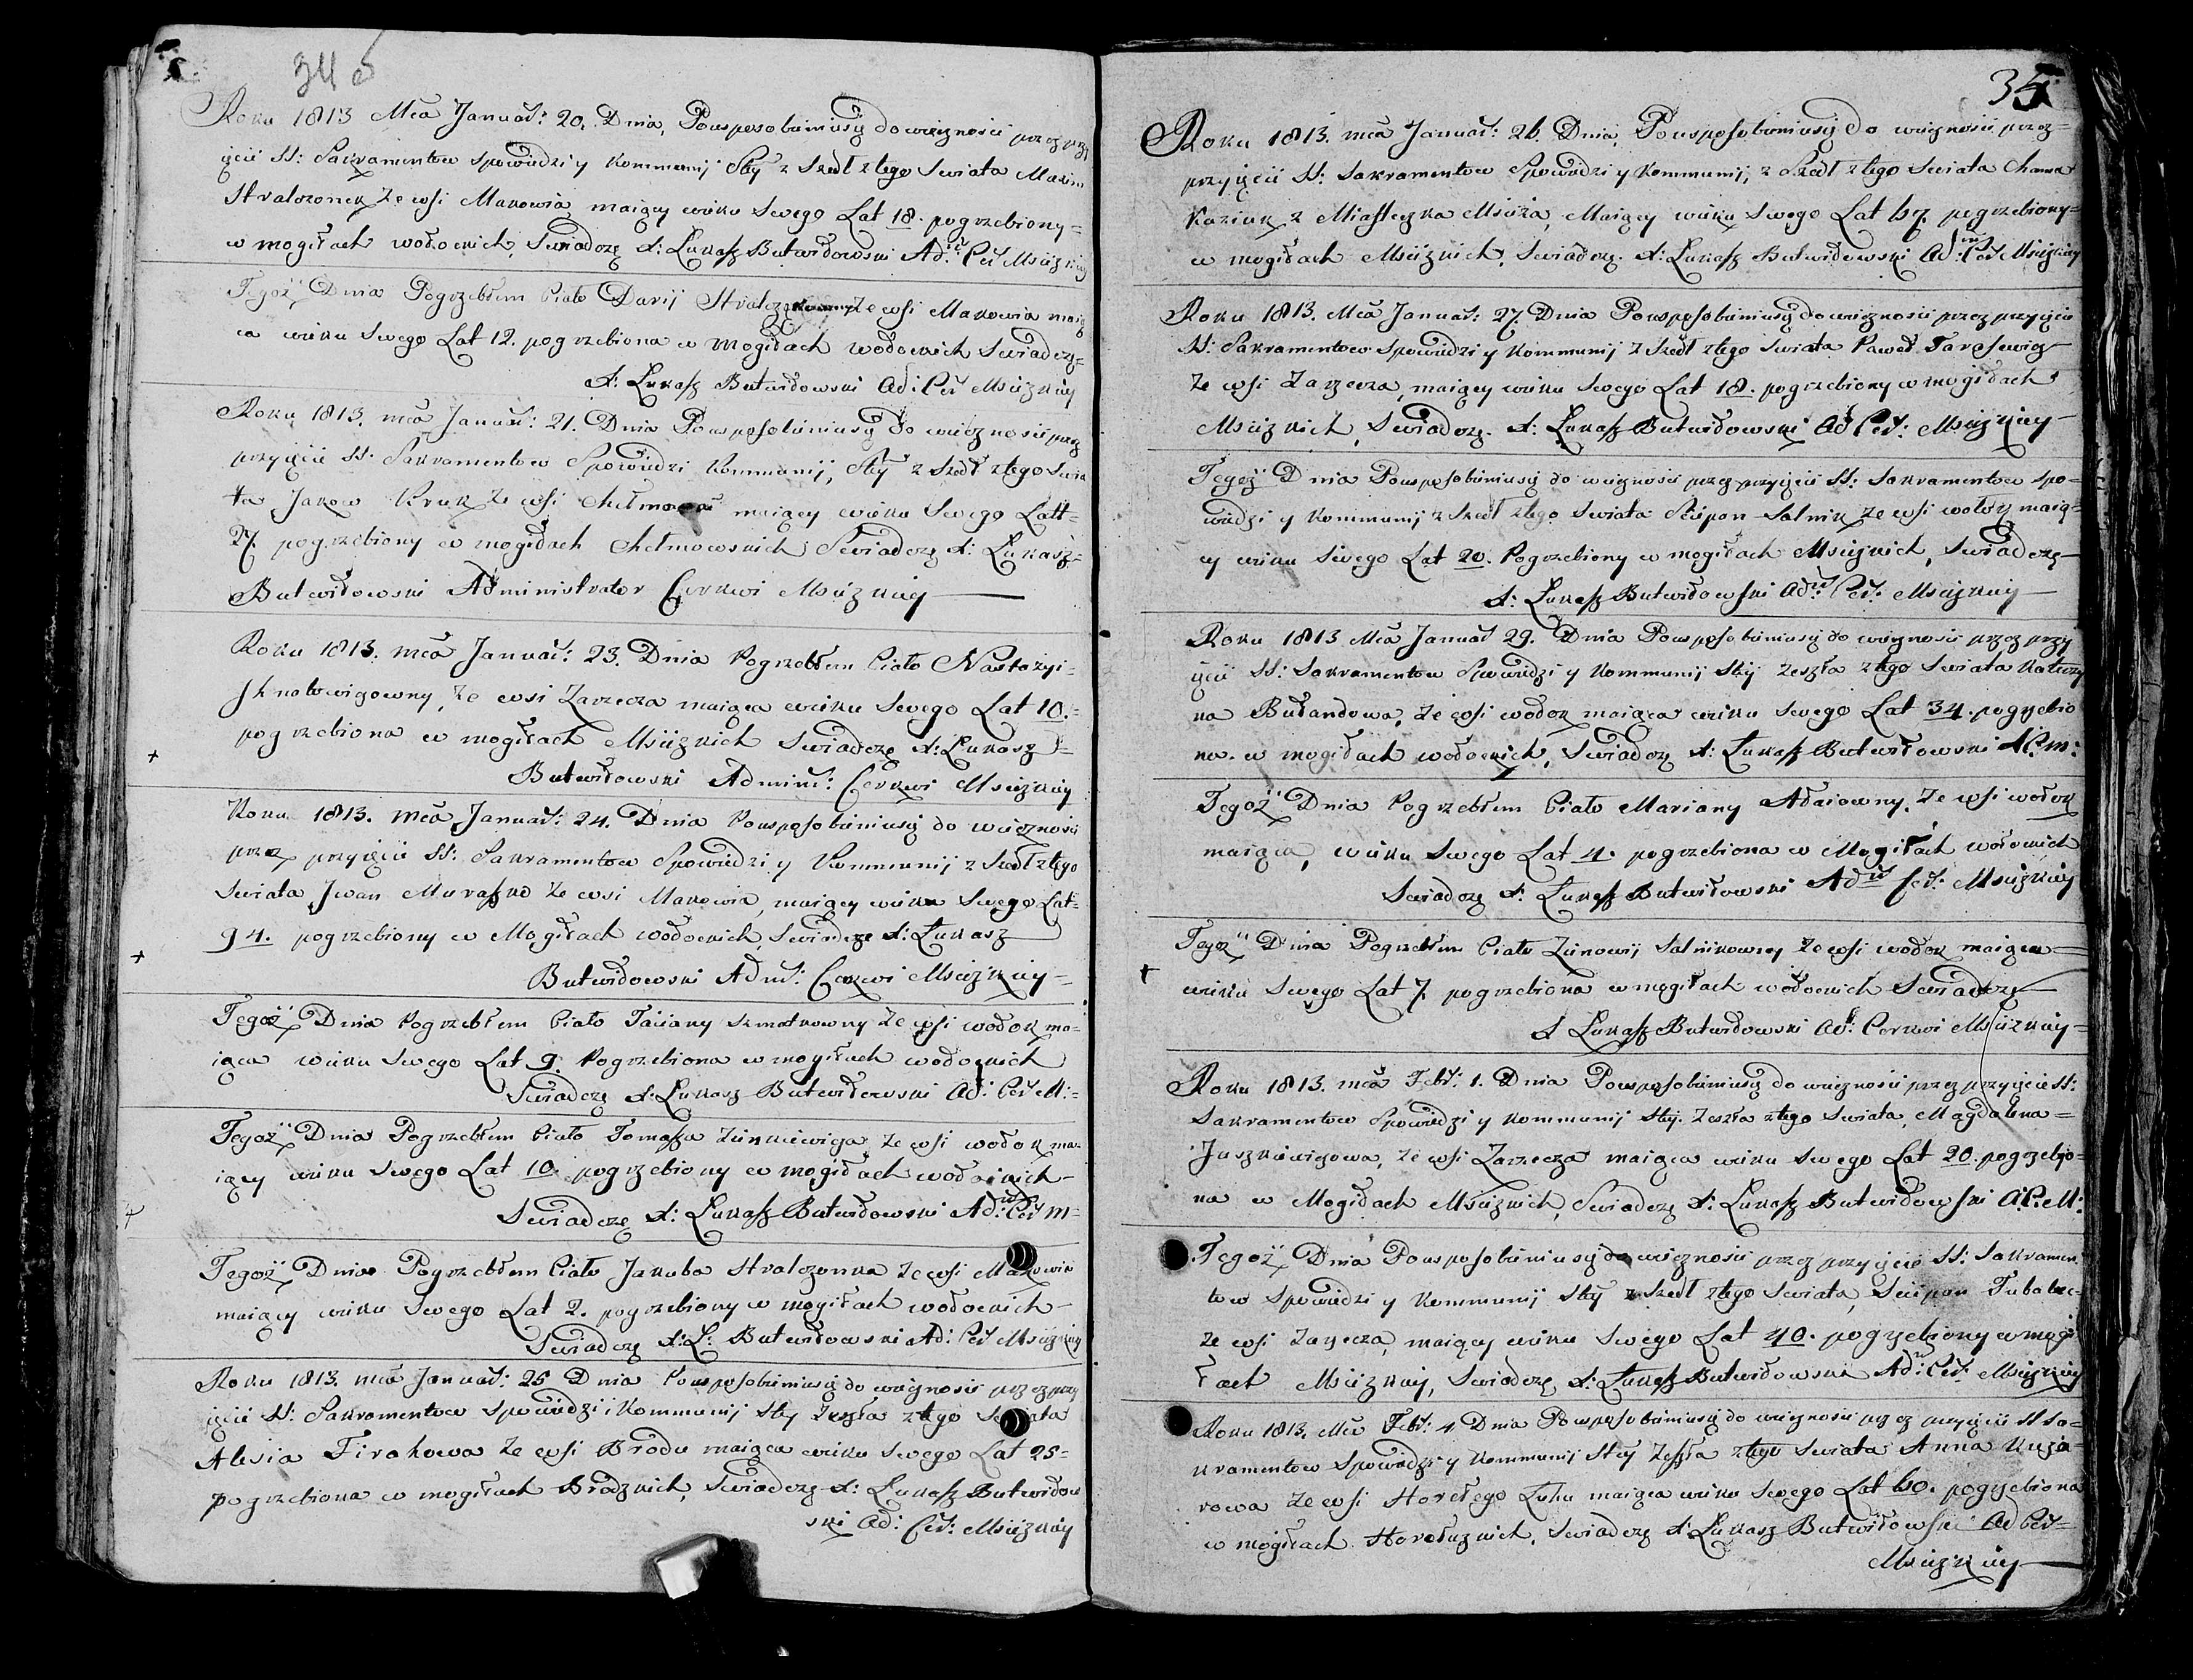 34
Roku 1813 Mca Januar: 20. Dnia, Pousposobiwniusię do wieczności przez przy
ięcie SS: Sakramentow Spowiedzi y Kommunij Stey zszedł ztego Swiata Maxim
Stralczonek ze wsi Makowia, maiący wieku Swego Lat 18. pogrzebiony=
w mogiłach wołockich, Swiadczę X: Łukasz Butwiłowski Ad: Cer Mściżskiey
Tegoż Dnia Pogrzebłem Ciało Darij ze wsi Makowia maią
ca wieku Swego Lat 12. pogrzebiona w Mogiłach wołockich Swiadczę=
X: Łukasz Butwiłowski Ad: Cer Mściżskiey
Roku 1813. mca Januar: 21. Dnia Pousposobiwniusię do wieczności przez
przyięcie SS: Sakramentow Spowiedzi Kommunij, Stey zszedł ztego Swia
ta Jakow Kruk ze wsi maiący wieku Swego Latt=
27. pogrzebiony w mogiłach Chełmowskich Swiadczę X: Łukasz=
Butwiłowski Administrator Cerkwi Mściżskiey
Roku 1813. mca Januar: 23. Dnia Pogrzebłem Ciało Nastazyi=
Jhnatowiczowny, ze wsi Zarzecza maiąca wieku Swego Lat 10.=
pogrzebiona w mogiłach Mściżskich Swiadczę X: Łukasz=
Butwiłowski Adminis: Cerkwi Mściżskiey
Roku 1813. mca Januar: 24. Dnia Pousposobiwniusię do wieczności
przez przyięcie SS: Sakramentow Spowiedzi y Kommunij zszedł ztego
Swiata Jwan Muraszko ze wsi Makowia, maiący wieku Swego Lat=
94. pogrzebiony w Mogiłach wołockich, Swiadczę X: Łukasz
Butwiłowski Adm: Cerkwi Mściżskiey=
Tegoż Dnia Pogrzebłem Ciało Taciany Szmatkowny ze wsi wołok ma-
iąca wieku Swego Lat 9. Pogrzebiona w mogiłach wołockich
Swiadczę X: Łukasz Butwiłowski Ad: Cer M:=
Tegoż Dnia Pogrzebłem Ciało Tomasza Zinkiewicza ze wsi wołok ma-
iący wieku Swego Lat 10. pogrzebiony w mogiłach wołockich-
Swiadczę X: Łukasz Butwiłowski Ad: Cer M=
Tegoż Dnia Pogrzebłem Ciało Jakuba Stralczonka ze wsi Makowia
maiący wieku Swego Lat 2. pogrzebiony w mogiłach wołockich-
Swiadczę X: Ł: Butwiłowski Ad: Cer Mściżskiey
Roku 1813. mca Januar: 25 Dnia Pousposobiwniusię do wieczności przez przy
ięcie SS: Sakramentow Spowiedzi i Kommunij Stey zeszła ztego Swiata
Alesia Firahowa ze wsi Brodu maiąca wieku Swego Lat 25=
pogrzebiona w mogiłach Brodzkich, Swiadczę X: Łukasz Butwiłow
ski Ad: Cer: Mściżskiey
35
Roku 1813. mca Januar: 26. Dnia, Pousposobiwniusię do wieczności przez=
przyięcie SS: Sakramentow Spowiedzi y Kommunij, zszedł ztego Swiata
Kaziuk z Miasteczka Mściża, Maiący wieku Swego Lat 67. pogrzebiony=
w mogiłach Mściżskich, Swiadczę. X: Łukasz Butwiłowski Ad: Cer Mściżskiey
Roku 1813. Mca Januar: 27. Dnia Pousposobiwniusię do wieczności przez przyięcie
SS: Sakramentow Spowiedzi y Kommunij zszedł ztego Swiata Paweł Tarasewicz
ze wsi Zarzecza, maiący wieku Swego Lat 18. pogrzebiony w mogiłach
Mściżskich, Swiadczę. X: Łukasz Butwiłowski Ad Cer: Mściżskiey
Tegoż Dnia Pousposobiwniusię do wieczności przez przyięcie SS: Sakramentow Spo-
wiedzi y Kommunij zszedł ztego Swiata Sciepan Salnik ze wsi maią-
cy wieku Swego Lat 20. Pogrzebiony w mogiłach Mściżskich, Swiadczę
X: Łukasz Butwiłowski Ad: Cer: Mściżskiey
Roku 1813 Mca Januar 29. Dnia Pousposobiwniusię do wieczności przez przy
ięcie SS: Sakramentow Spowiedzi y Kommunij Stey zeszła ztego Swiata Katerzy
na Bułandowa, ze wsi wołok maiąca wieku Swego Lat 34. pogrzebio
na. w mogiłach wołockich, Swiadczę X: Łukasz Butwiłowski A.C.M:
Tegoż Dnia Pogrzebłem Ciało Mariany Ałaiowny, ze wsi wołok
maiąca, wieku Swego Lat 4. pogrzebiona w Mogiłach wołockich
Swiadczę X: Łukasz Butwiłowski Ad Cer: Mściżskiey
Tegoż Dnia Pogrzebłem Ciało Zinowij Salnikowny ze wsi wołok maiąca=
wieku Swego Lat 7. pogrzebiona w mogiłach wołockich Swiadczę
X Łukasz Butwiłowski Ad: Cerkwi Mściżskiey=
Roku 1813. mca Febr: 1. Dnia Pousposobiwniusię do wieczności przez przyięcie SS:
Sakramentow Spowiedzi y Kommunij Stey. zeszła ztego Swiata, Magdalena=
Juszkiewiczowa, ze wsi Zarzecza maiąca wieku Swego Lat 20. pogrzebio=
na w Mogiłach Mściżskich, Swiadczę X: Łukasz Butwiłowski A.C.M:
Tegoż Dnia Pousposobiwniusię do wieczności przez przyięcie SS: Sakramen
tow Spowiedzi y Kommunij Stey zszedł ztego Swiata, Sciepan
ze wsi Zarzecza, maiący wieku Swego Lat 40. pogrzebiony w mogi
łach Mściżskiey, Swiadczę X: Łukasz Butwiłowski Ad: Cer: Mściżskiey
Roku 1813. Mca Febr: 4 Dnia Pousposobiwniusię do wieczności przez przyięcie SS Sa-
kramentow Spowiedzi y Kommunij Stey zeszła ztego Swiata Anna
rowa ze wsi Horełego Łuhu maiąca wieku Swego Lat 60. pogrzebiona
w mogiłach Horełuzkich, Swiadczę X: Łukasz Butwiłowski Ad Cer=
Mściżskiey